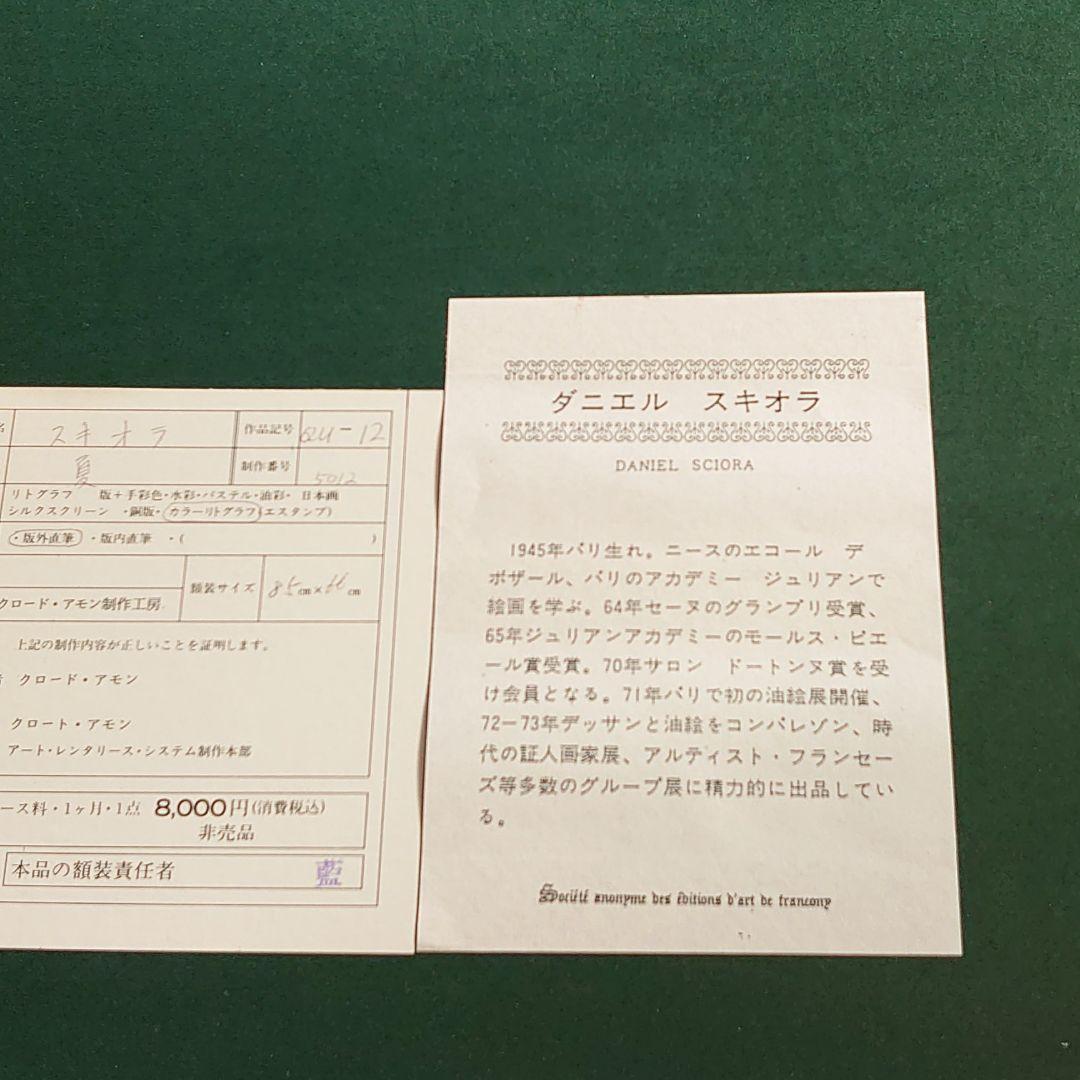 スキオラ
作品記号
-12
夏
制作番号
5012
リトグラフ 版+手彩色・水彩・パステル・油彩・ 日本画
シルクスクリーン ・銅版・カラーリトグラフ(エスタンプ)
・版外直筆 ・版内直筆 ・( )
額装サイズ
85cm×66cm
クロード・アモン制作工房
上記の制作内容が正しいことを証明します。
クロード・アモン
クロート・アモン
アート・レンタリース・システム制作本部
ース料・1ヶ月・1点 8,000円(消費税込)
非売品
本品の額装責任者
藍
ダニエル スキオラ
DANIEL SCIORA
1945年パリ生れ。ニースのエコール デ
ボザール、パリのアカデミー ジュリアンで
絵画を学ぶ。64年セーヌのグランプリ受賞、
65年ジュリアンアカデミーのモールス・ピエ
ール賞受賞。70年サロン ドートンヌ賞を受
け会員となる。71年パリで初の油絵展開催、
72-73年デッサンと油絵をコンパレゾン、時
代の証人画家展、アルティスト・フランセー
ズ等多数のグループ展に精力的に出品してい
る。
Société anonyme des éditions d'art de francony